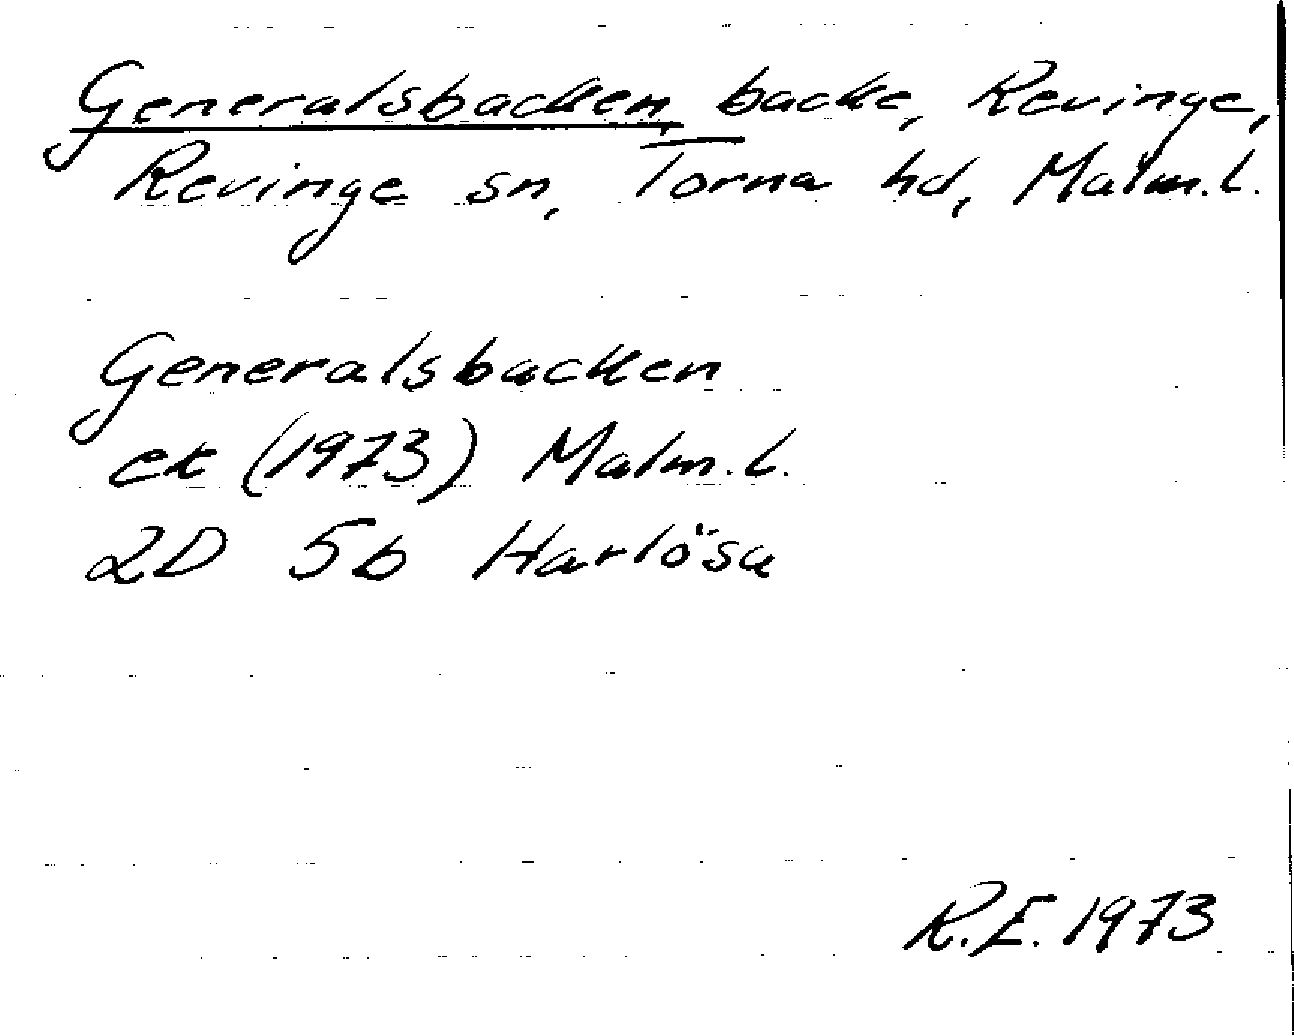 Generalsbacken, backe, Revinge,
Revinge sn, Torna hd, Malm.l.
Generalsbacken
ek (1973) Malm.l.
2D 5b Harlösa
R.E. 1973